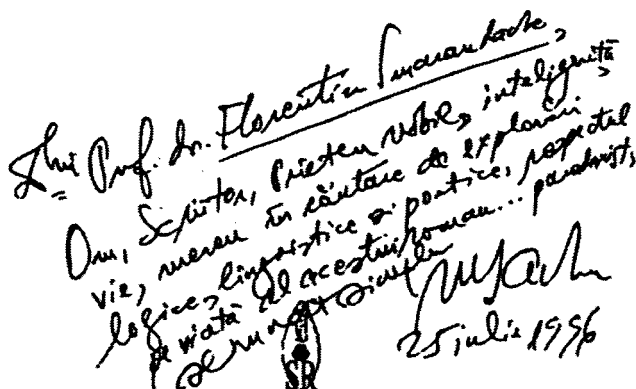 Lui Prof. dr. Florentin Smarandache,
Om, Scriitor, Prieten nobil, inteligență
vie, mereu în căutare de explorări
logice, lingvistice și poetice, respectul
pe viață al acestui roman... paradoxist,
semnat simplu
25 iulie 1996
SR